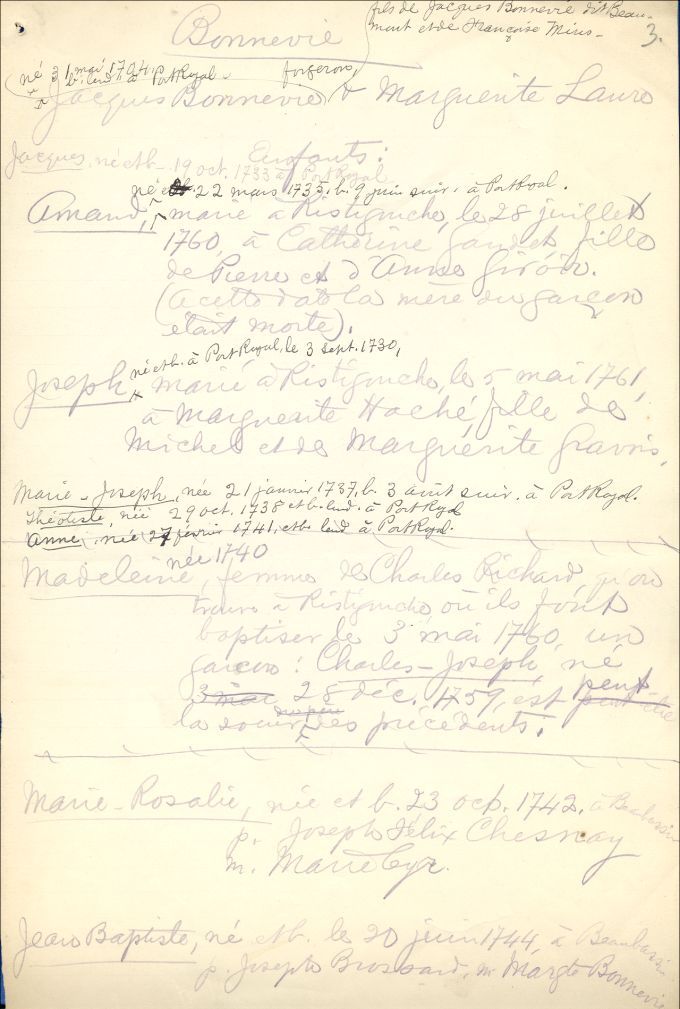 fils de Jacques Bonnevie dit Beau-
mont et de Françoise Mius-
3.
Bonnevie
né 31 mai 1704,
b. lend. à Port Royal.
forgeron,
Jacques Bonnevie & Marguerite Laure
Enfants:
Jacques, né et b. 19 oct. 1733 à Port Royal
né 22 mars 1735, b. 9 juin suiv. à Port Royal.
Amand, marié à Ristigouche, le 28 juillet
1760, à Catherine Gaudet, fille
de Pierre et d'Anne Giroir.
(A cette date la mère du garçon
était morte).
né et b. à Port Royal, le 3 sept. 1730,
Joseph, marié à Ristigouche, le 5 mai 1761,
à Marguerite Haché, fille de
Michel et de Marguerite Gravois,
Marie-Joseph, née 21 janvier 1737, b. 3 août suiv. à Port Royal.
Théotiste, née 29 oct. 1738 et b. lend. à Port Royal
Anne, née 27 février 1741, et b. lend. à Port Royal.
née 1740
Madeleine, femme de Charles Richard, qu'on
trouve à Ristigouche où ils font
baptiser le 3 mai 1760, un
garçon: Charles-Joseph, né
3 mai 28 déc. 1759, est peut-être
la soeur des précédents.
Marie-Rosalie, née et b. 23 oct. 1742, à Beaubassin
p. Joseph Félix Chesnay
m. Marie Cyr.
Jean Baptiste, né et b. le 20 juin 1744, à Beaubassin
p. Joseph Brossard, m. Margte Bonnevie